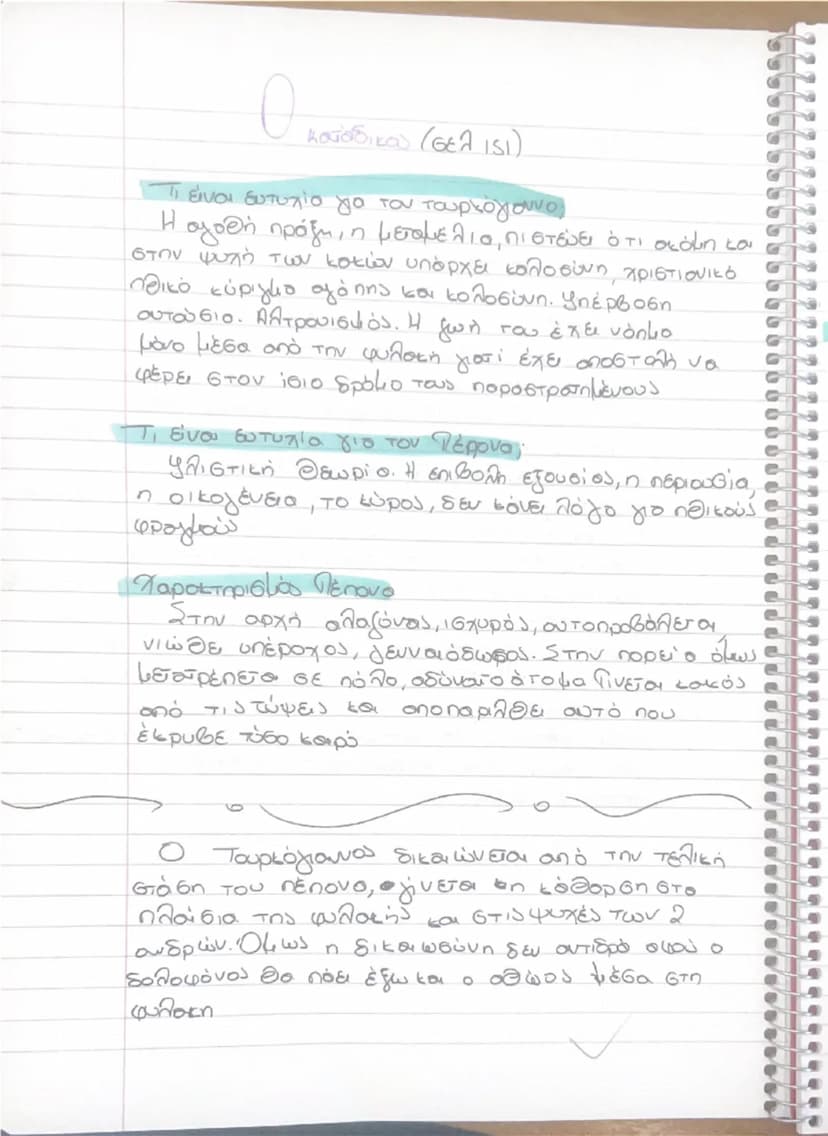 Ο κατάδικος (σελ 151)
Τι είναι ευτυχία για τον Τουρκόγιαννο;
Η αγαθή πράξη, η μεταμέλεια, πιστεύει ότι ακόμη και
στην ψυχή των κακών υπάρχει καλοσύνη, χριστιανικό
ηθικό κύριγμα αγάπης και καλοσύνη. Υπέρβαση
αυτούσιο. Αλτρουισμός. Η ζωή του έχει νόημα
μόνο μέσα από την φυλακή γιατί έχει αποστολή να
φέρει στον ίσιο δρόμο τους παραστρατημένους
Τι είναι ευτυχία για τον Πέπονα;
Υλιστική θεωρία. Η επιβολή εξουσίας, η περιουσία,
η οικογένεια, το κύρος, δεν κάνει λόγο για ηθικούς
φραγμούς
Χαρακτηρισμός Πέπονα
Στην αρχή αλαζόνας, ισχυρός, αυτοπροβάλεται,
νιώθει υπέροχος, γενναιόδωρος. Στην πορεία όμως
μετατρέπεται σε αδύναμο άτομο Γίνεται κακός
από τις τύψεις και αυτό που
έκρυβε τόσο καιρό
Ο Τουρκόγιαννος δικαιώνεται από την τελική
στάση του πέπονα, γίνεται η κάθαρση στα
πλαίσια της φυλακής και στις ψυχές των 2
ανδρών. Όμως η δικαιωσύνη δεν αντιδρά αφού ο
δολοφόνος θα πάει έξω και ο αθώος μέσα στη
φυλακη